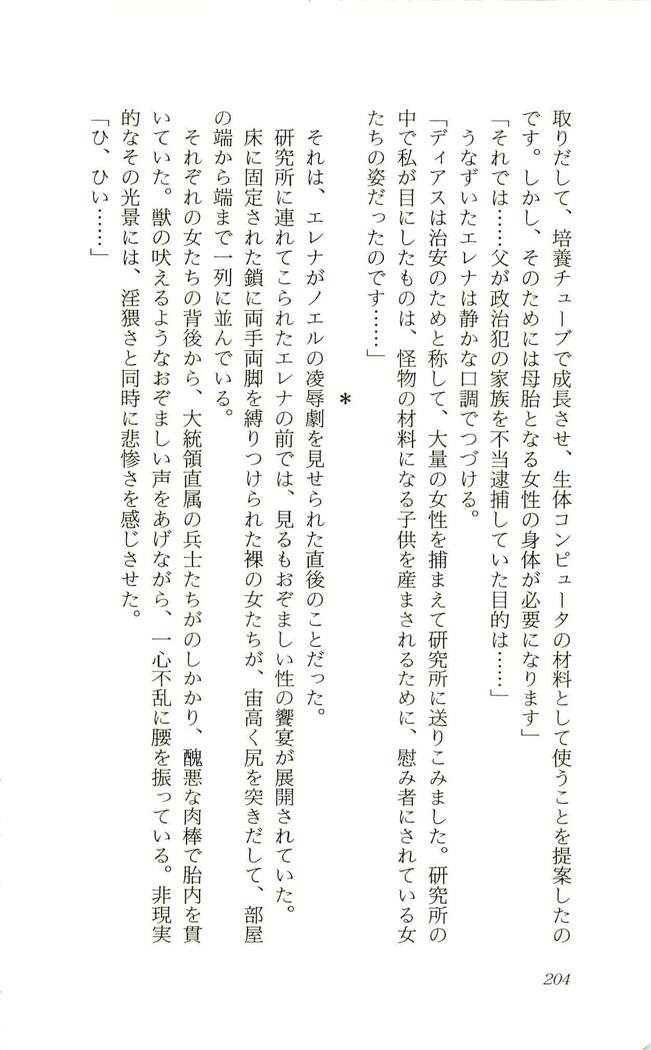 取りだして、培養チューブで成長させ、生体コンピュータの材料として使うことを提案したの
です。しかし、そのためには母胎となる女性の身体が必要になります」
「それでは……父が政治犯の家族を不当逮捕していた目的は……」
うなずいたエレナは静かな口調でつづける。
「ディアスは治安のためと称して、大量の女性を捕まえて研究所に送りこみました。研究所の
中で私が目にしたものは、怪物の材料になる子供を産まされるために、慰み者にされている女
たちの姿だったのです……」
＊
それは、エレナがノエルの凌辱劇を見せられた直後のことだった。
研究所に連れてこられたエレナの前では、見るもおぞましい性の饗宴が展開されていた。
床に固定された鎖に両手両脚を縛りつけられた裸の女たちが、宙高く尻を突きだして、部屋
の端から端まで一列に並んでいる。
それぞれの女たちの背後から、大統領直属の兵士たちがのしかかり、醜悪な肉棒で胎内を貫
いていた。獣の吠えるようなおぞましい声をあげながら、一心不乱に腰を振っている。非現実
的なその光景には、淫猥さと同時に悲惨さを感じさせた。
「ひ、ひい……」
204